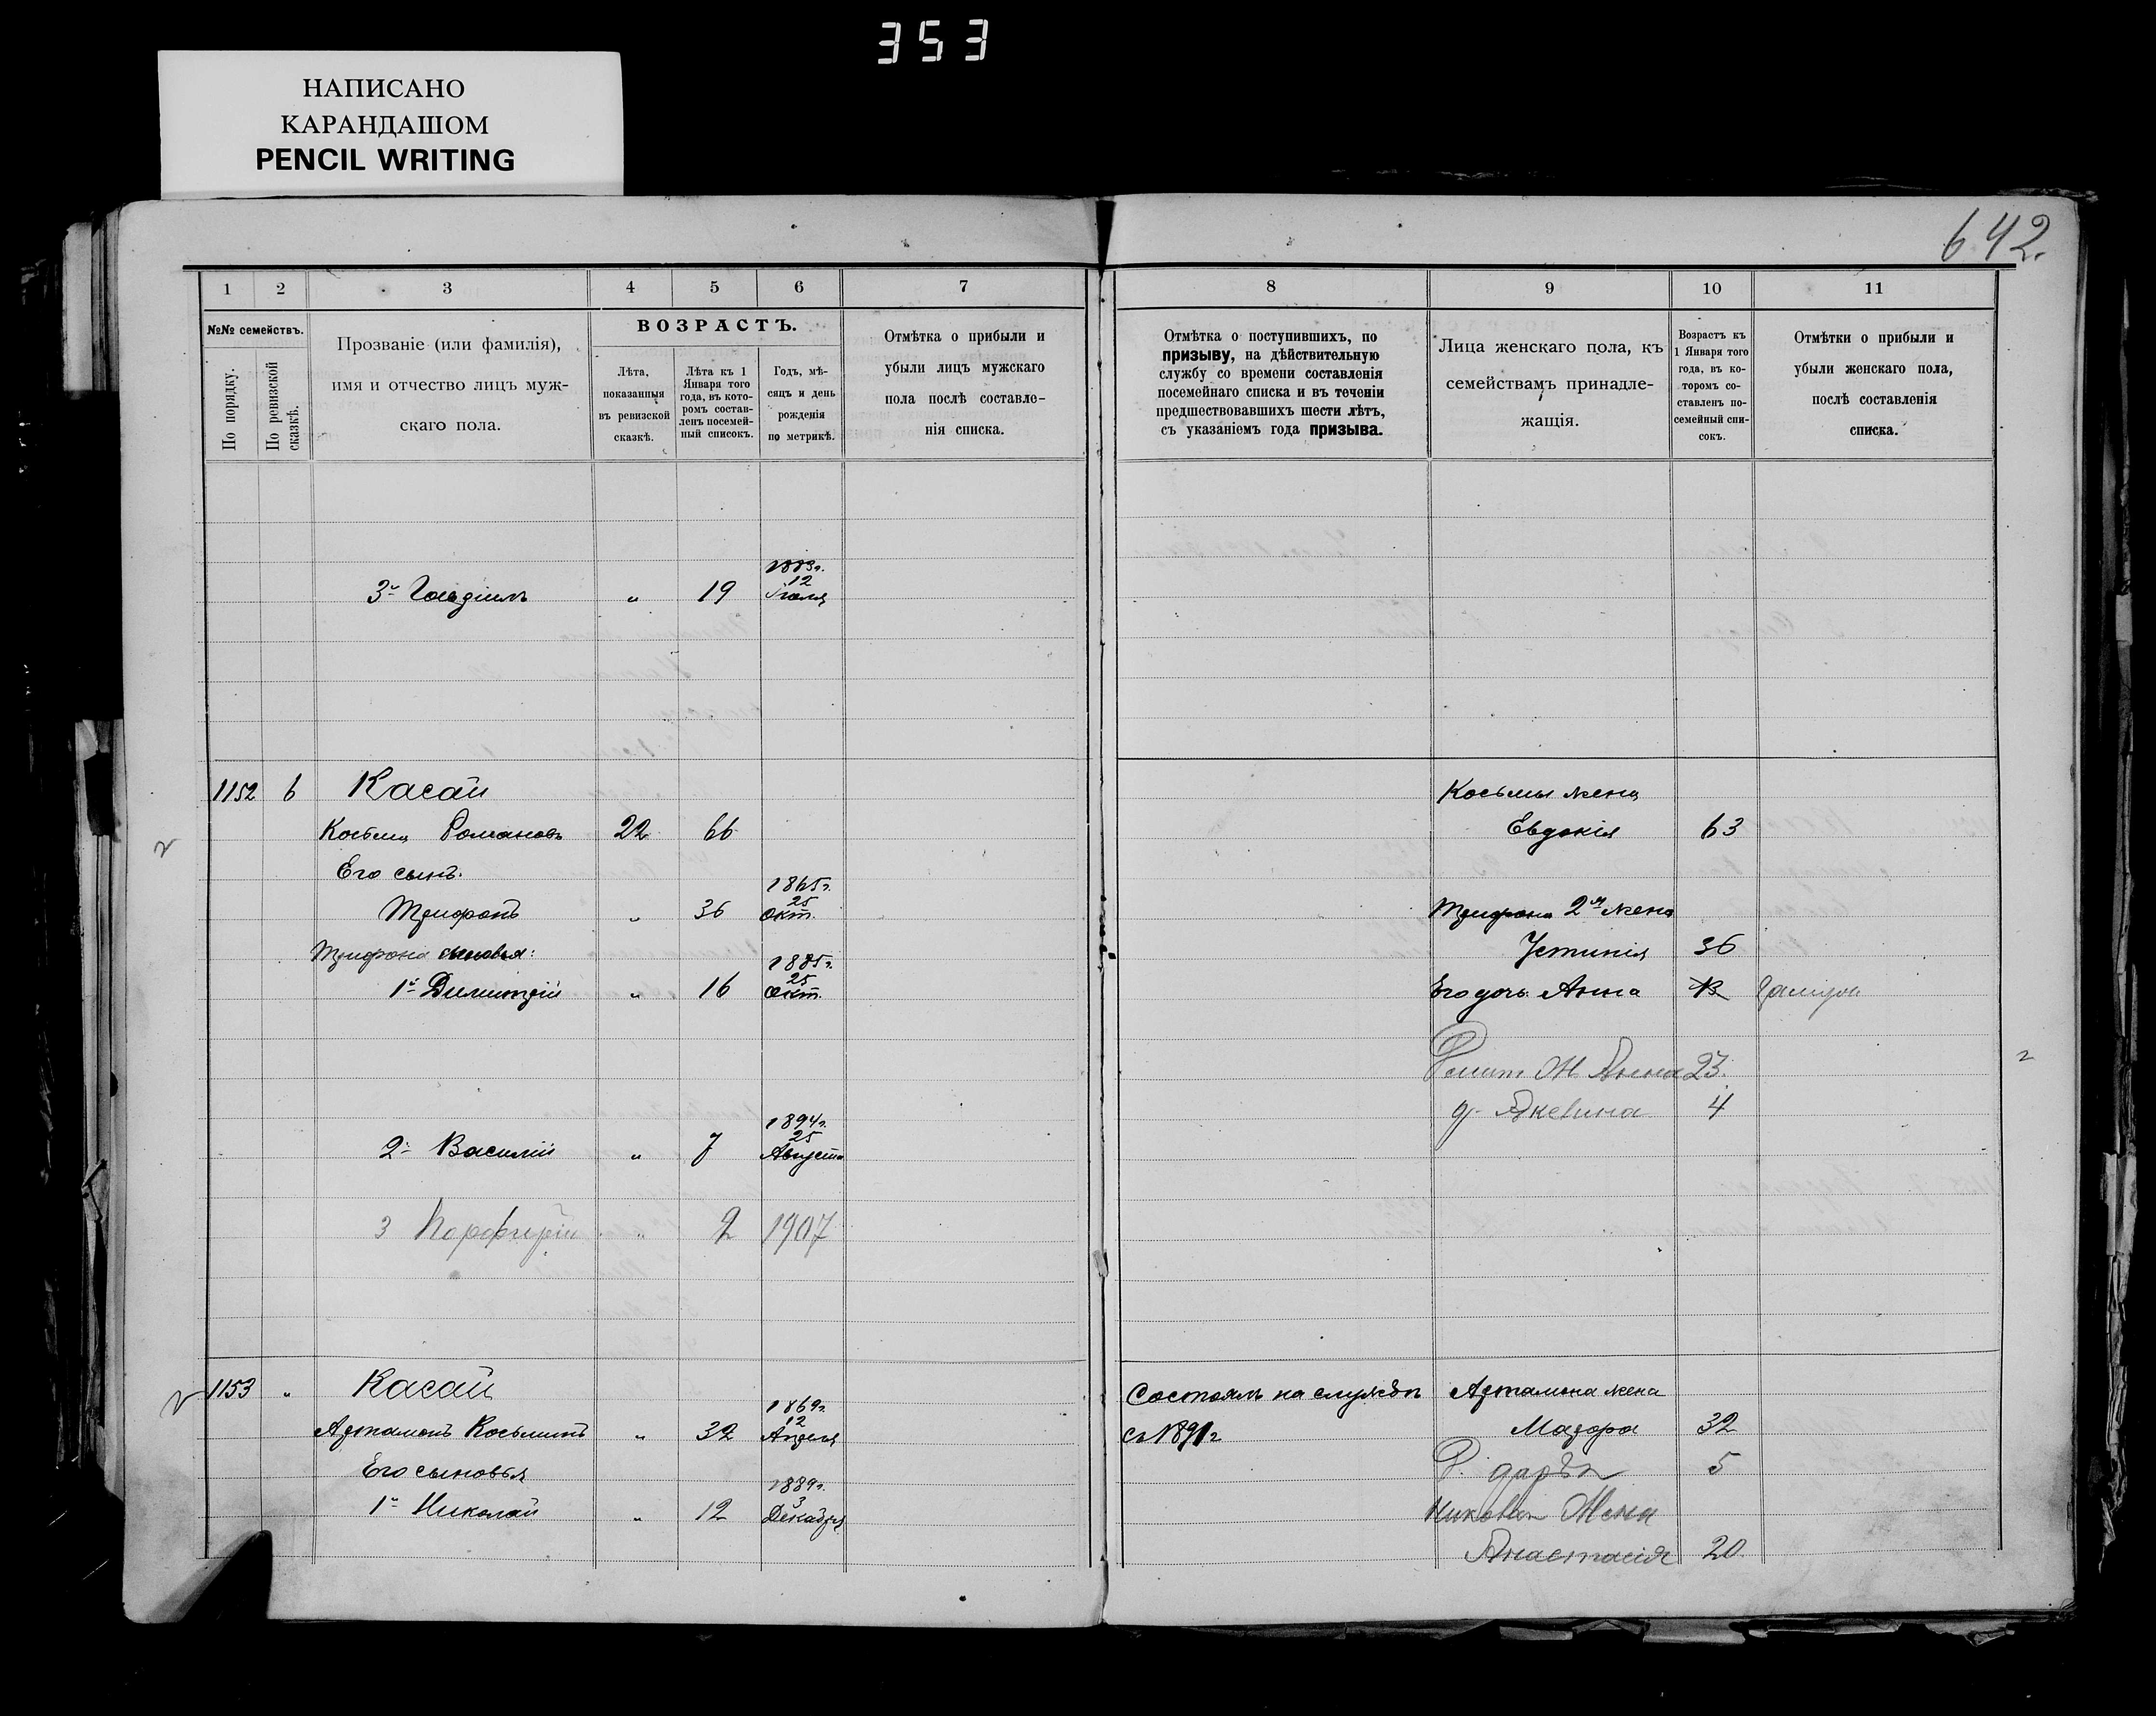 353
НАПИСАНО
КАРАНДАШОМ
PENCIL WRITING
642.
1 2 3 4 5 6 7
№№ семействъ.
По порядку.
По ревизской сказкѣ.
Прозваніе (или фамилія),
имя и отчество лицъ муж-
скаго пола.
ВОЗРАСТЪ.
Лѣта,
показанныя
въ ревизской
сказкѣ.
Лѣта къ 1
Января того
года, въ кото-
ромъ состав-
ленъ посемей-
ный списокъ.
Годъ, мѣ-
сяцъ и день
рожденія
по метрикѣ.
Отмѣтка о прибыли и
убыли лицъ мужскаго
пола послѣ составле-
нія списка.
1883г.
12
3й " 19 Іюля
1152 6 Касай
Косьма Романовъ 22 66
Его сынъ:
1865г.
25
Трифонъ " 36 Окт.
Трифона сыновья:
1885г.
25
1й Димитрій " 16 Окт.
1894г.
25
2й Василій " 7 Августа
3 Порфирій " 2 1907
1153 " Касай
1869г.
12
Артамонъ Косьминъ " 32 Апреля
Его сыновья
1889г.
3
1й Николай " 12 Декабря
8 9 10 11
Отмѣтка о поступившихъ, по
призыву, на дѣйствительную
службу со времени составленія
посемейнаго списка и въ теченіи
предшествовавшихъ шести лѣтъ,
съ указаніемъ года призыва.
Лица женскаго пола, къ
семействамъ принадле-
жащія.
Возрастъ къ
1 Января того
года, въ ко-
торомъ со-
ставленъ по-
семейный спи-
сокъ.
Отмѣтки о прибыли и
убыли женскаго пола,
послѣ составленія
списка.
Косьмы жена
Евдокія 63
Трифона 2я жена
Устинія 36
Его дочь Анна
Ж Анна 23.
д. 4
Состоялъ на службѣ Артамона жена
съ 1891г Мавра 32
Дарья 5
Жена
Анастасія 20